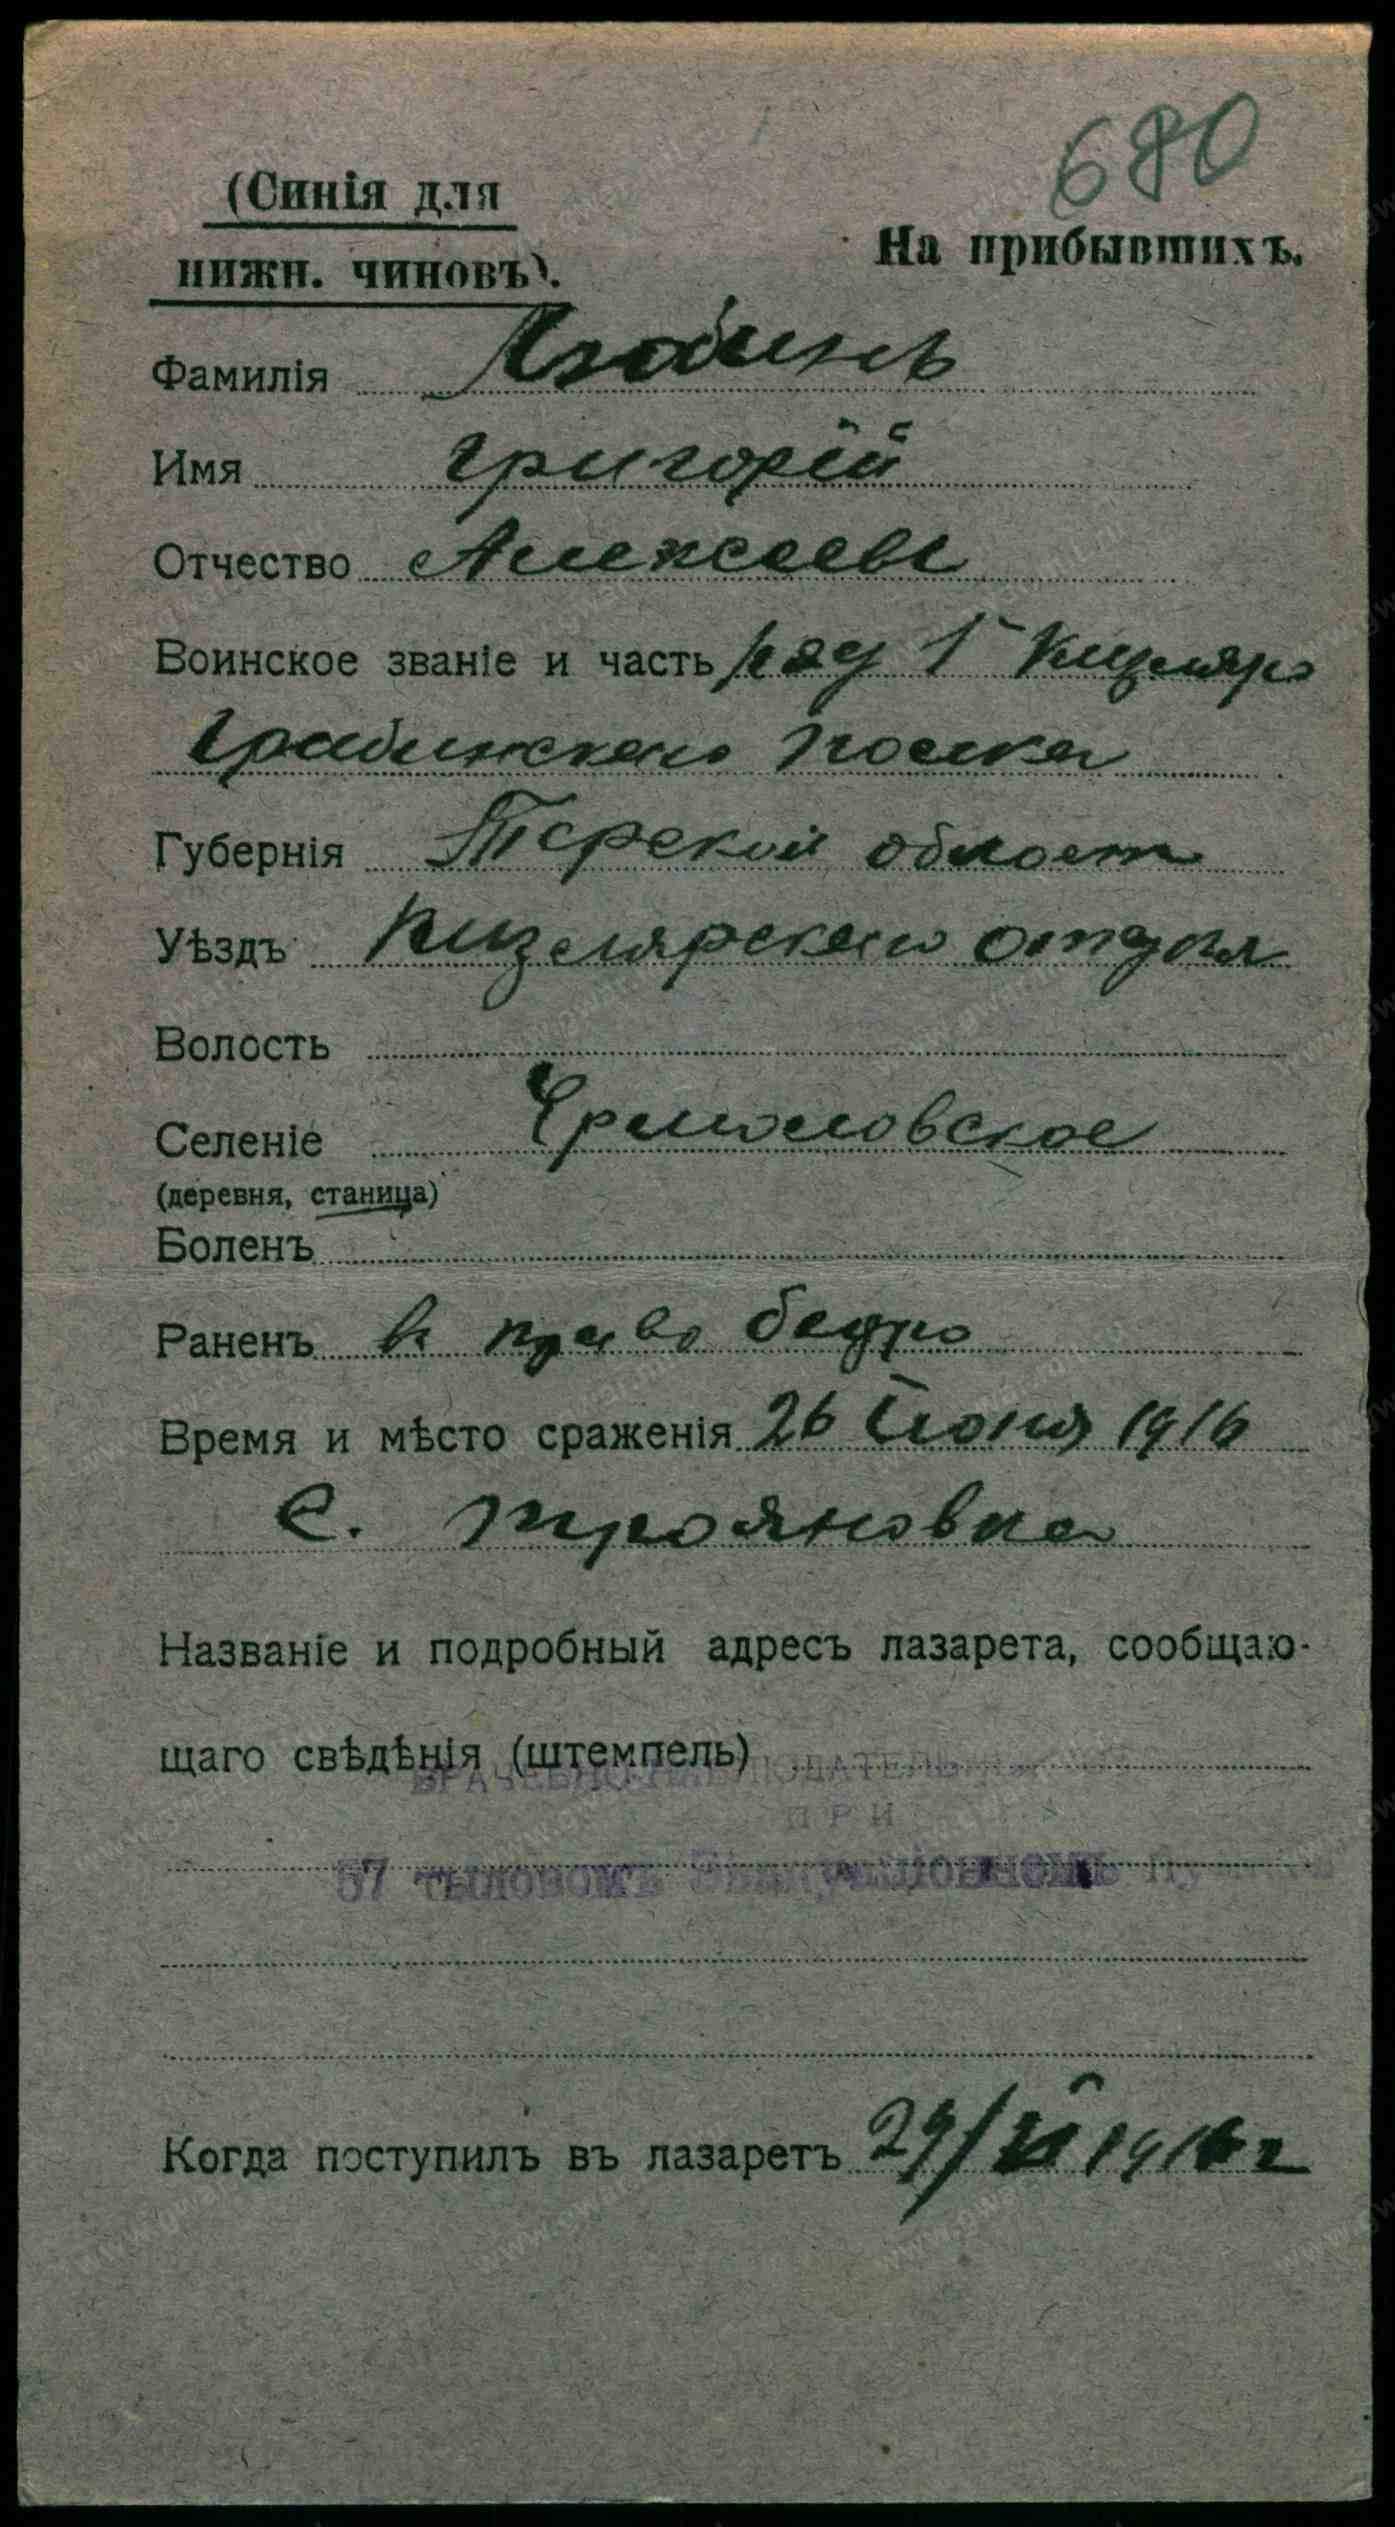 680
(Синія для
нижн. чиновъ).
На прибывшихъ.
Фамилія
Имя Григорій
Отчество Алексеевъ
Воинское званіе и часть ряд 1 г Кизляро
Гребинскаго полка
Губернія Терской област
Уѣздъ Кизлярскаго отдела
Волость
Селеніе Ермоловское
(деревня, станица)
Боленъ
Раненъ в право бедро
Время и мѣсто сраженія 26 Іюня 1916
с. Трояновка
Названіе и подробный адресъ лазарета, сообщаю-
щаго свѣдѣнія (штемпель)
ПРИ
57 тыловомъ Эвакуаціонномъ Пу
Когда поступилъ въ лазаретъ 29/VI 1916 г